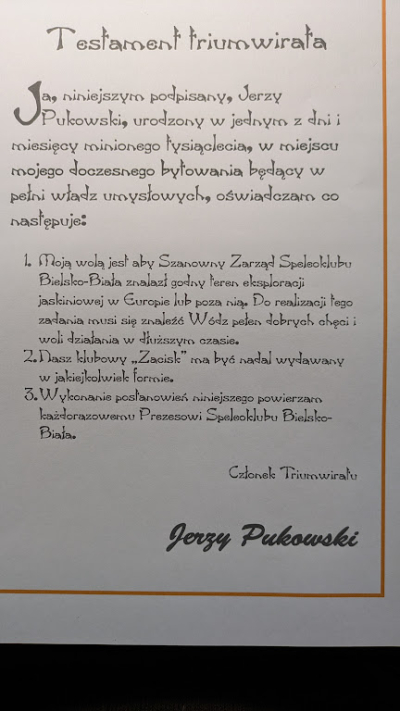 Testament triumwirata
Ja, niniejszym podpisany, Jerzy
Pukowski, urodzony w jednym z dni i
miesięcy minionego tysiąclecia, w miejscu
mojego doczesnego bytowania będący w
pełni władz umysłowych, oświadczam co
następuje:
1. Moją wolą jest aby Szanowny Zarząd Speleoklubu
Bielsko-Biała znalazł godny teren eksploracji
jaskiniowej w Europie lub poza nią. Do realizacji tego
zadania musi się znaleźć Wódz pełen dobrych chęci i
woli działania w dłuższym czasie.
2. Nasz klubowy „Zacisk" ma być nadal wydawany
w jakiejkolwiek formie.
3. Wykonanie postanowień niniejszego powierzam
każdorazowemu Prezesowi Speleoklubu Bielsko-
Biała.
Członek Triumwiratu
Jerzy Pukowski